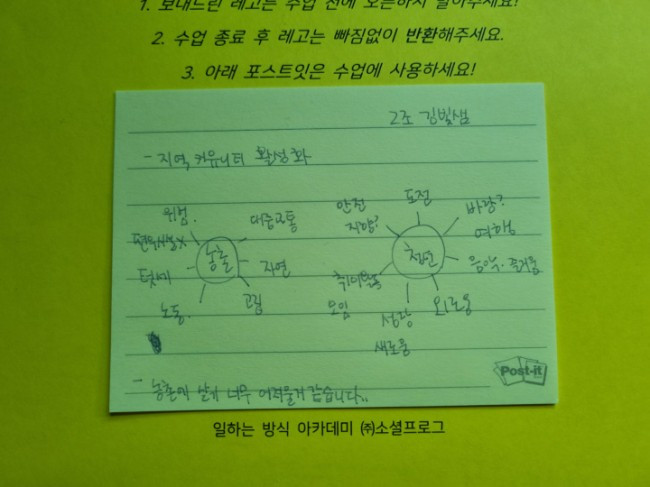 1. 보내드린 레고는 수업 전에 오픈하지 말아주세요!
2. 수업 종료 후 레고는 빠짐없이 반환해주세요.
3. 아래 포스트잇은 수업에 사용하세요!
2조 김빛샘
- 지역 커뮤니티 활성화
위험.
편의시설X
텃세
노동.
농촌
대중교통
자연
고립
안전
지향?
도전
바람?
여행
청년
음악. 즐거움
취미활동
모임
성장
새로움
외로움
- 농촌에 살기 너무 어려울거 같습니다..
Post-it
일하는 방식 아카데미 ㈜소셜프로그